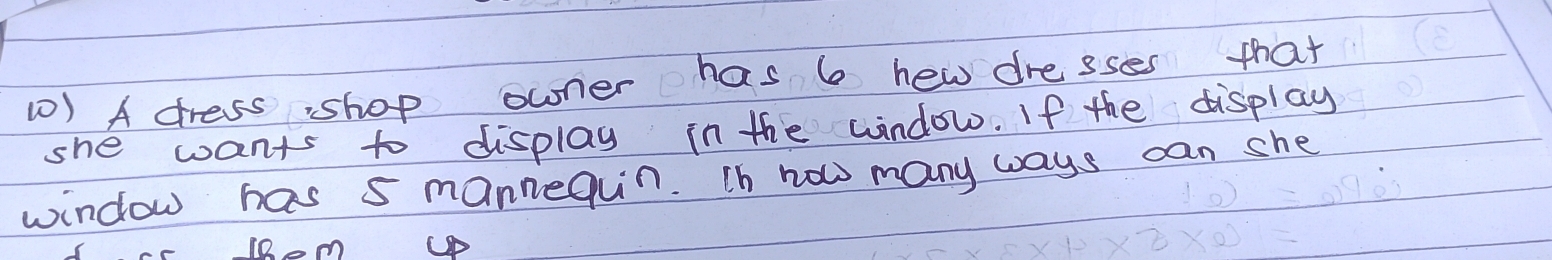 10) A dress shop owner has 6 new dresses that
she wants to display in the window. If the display
window has 5 mannequin. In how many ways can she
dress them up